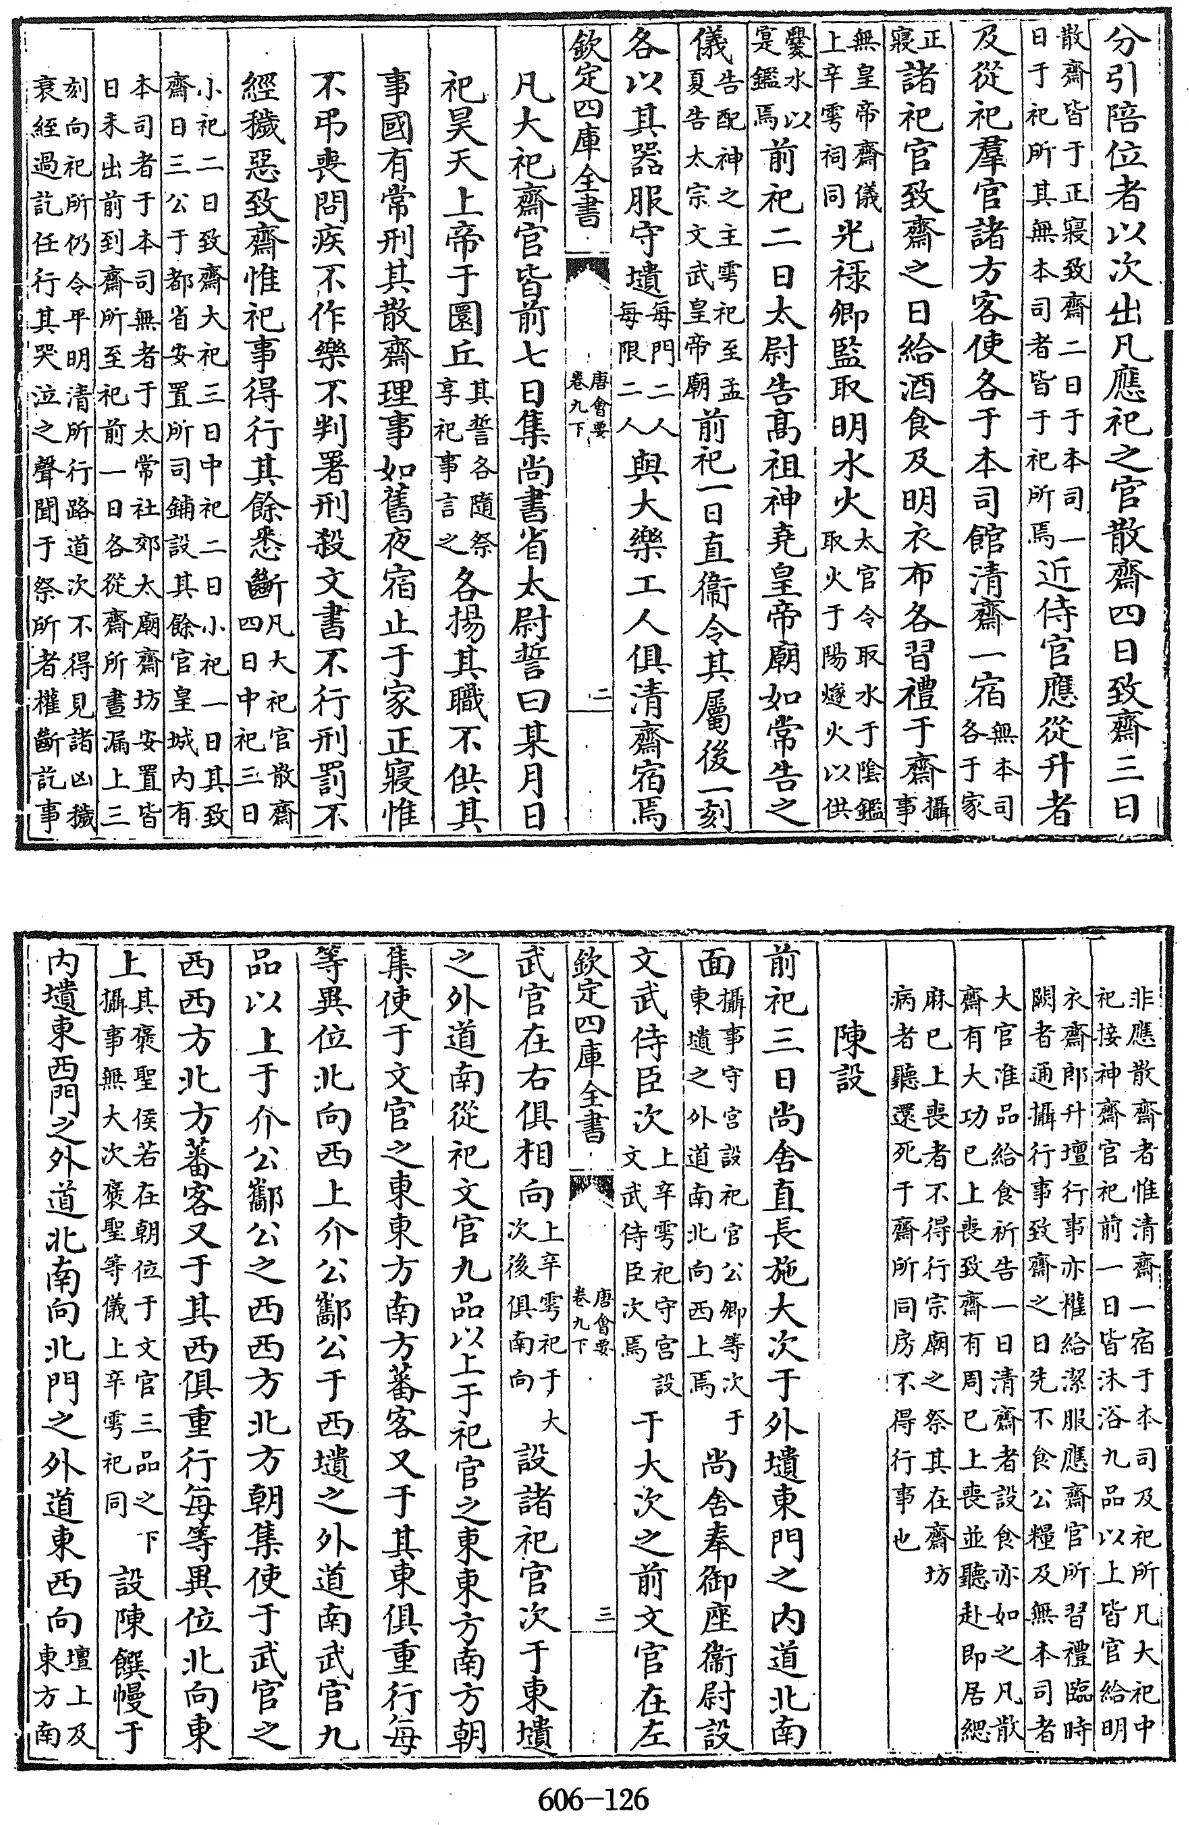 分引陪位者以次出凡應祀之官散齋四日致齋三日
散齋皆于正寢致齋二日于本司一日于祀所其無本司者皆于祀所焉近侍官應從升者
及從祀羣官諸方客使各于本司館清齋一宿無本司各于家
正寢諸祀官致齋之日給酒食及明衣布各習禮于齋攝事
無皇帝齋儀上辛雩祠同光祿卿監取明水火太官令取水于陰鑑取火于陽燧火以供
爨水以寔鑑焉前祀二日太尉告髙祖神堯皇帝廟如常告之
儀告配神之主雩祀至孟夏告太宗文武皇帝廟前祀一日直衞令其屬後一刻
各以其器服守壝每門二人每限二人與大樂工人俱清齋宿焉
欽定四庫全書 唐會要卷九下 二
凡大祀齋官皆前七日集尚書省太尉誓曰某月日
祀昊天上帝于圜丘其誓各隨祭享祀事言之各揚其職不供其
事國有常刑其散齋理事如舊夜宿止于家正寢惟
不弔喪問疾不作樂不判署刑殺文書不行刑罰不
經穢惡致齋惟祀事得行其餘悉斷凡大祀官散齋四日中祀三日
小祀二日致齋大祀三日中祀二日小祀一日其致齋日三公于都省安置所司鋪設其餘官皇城内有
本司者于本司無者于太常社郊太廟齋坊安置皆日未出前到齋所至祀前一日各從齋所晝漏上三
刻向祀所仍令平明清所行路道次不得見諸凶穢衰絰過訖任行其哭泣之聲聞于祭所者權斷訖事
非應散齋者惟清齋一宿于本司及祀所凡大祀中祀接神齋官祀前一日皆沐浴九品以上皆官給明
衣齋郎升壇行事亦權給潔服應齋官所習禮臨時闕者通攝行事致齋之日先不食公糧及無本司者
大官准品給食祈告一日清齋者設食亦如之凡散齋有大功已上喪致齋有周已上喪並聽赴即居緦
麻已上喪者不得行宗廟之祭其在齋坊病者聽還死于齋所同房不得行事也
陳設
前祀三日尚舍直長施大次于外壝東門之内道北南
面攝事守宮設祀官公卿等次于東壝之外道南北向西上焉尚舍奉御座衞尉設
文武侍臣次上辛雩祀守宮設文武侍臣次焉于大次之前文官在左
欽定四庫全書 唐會要卷九下 三
武官在右俱相向上辛雩祀于大次後俱南向設諸祀官次于東壝
之外道南從祀文官九品以上于祀官之東東方南方朝
集使于文官之東東方南方蕃客又于其東俱重行每
等異位北向西上介公酅公于西壝之外道南武官九
品以上于介公酅公之西西方北方朝集使于武官之
西西方北方蕃客又于其西俱重行每等異位北向東
上其褒聖侯若在朝位于文官三品之下攝事無大次褒聖等儀上辛雩祀同設陳饌幔于
内壝東西門之外道北南向北門之外道東西向壇上及東方南
606-126